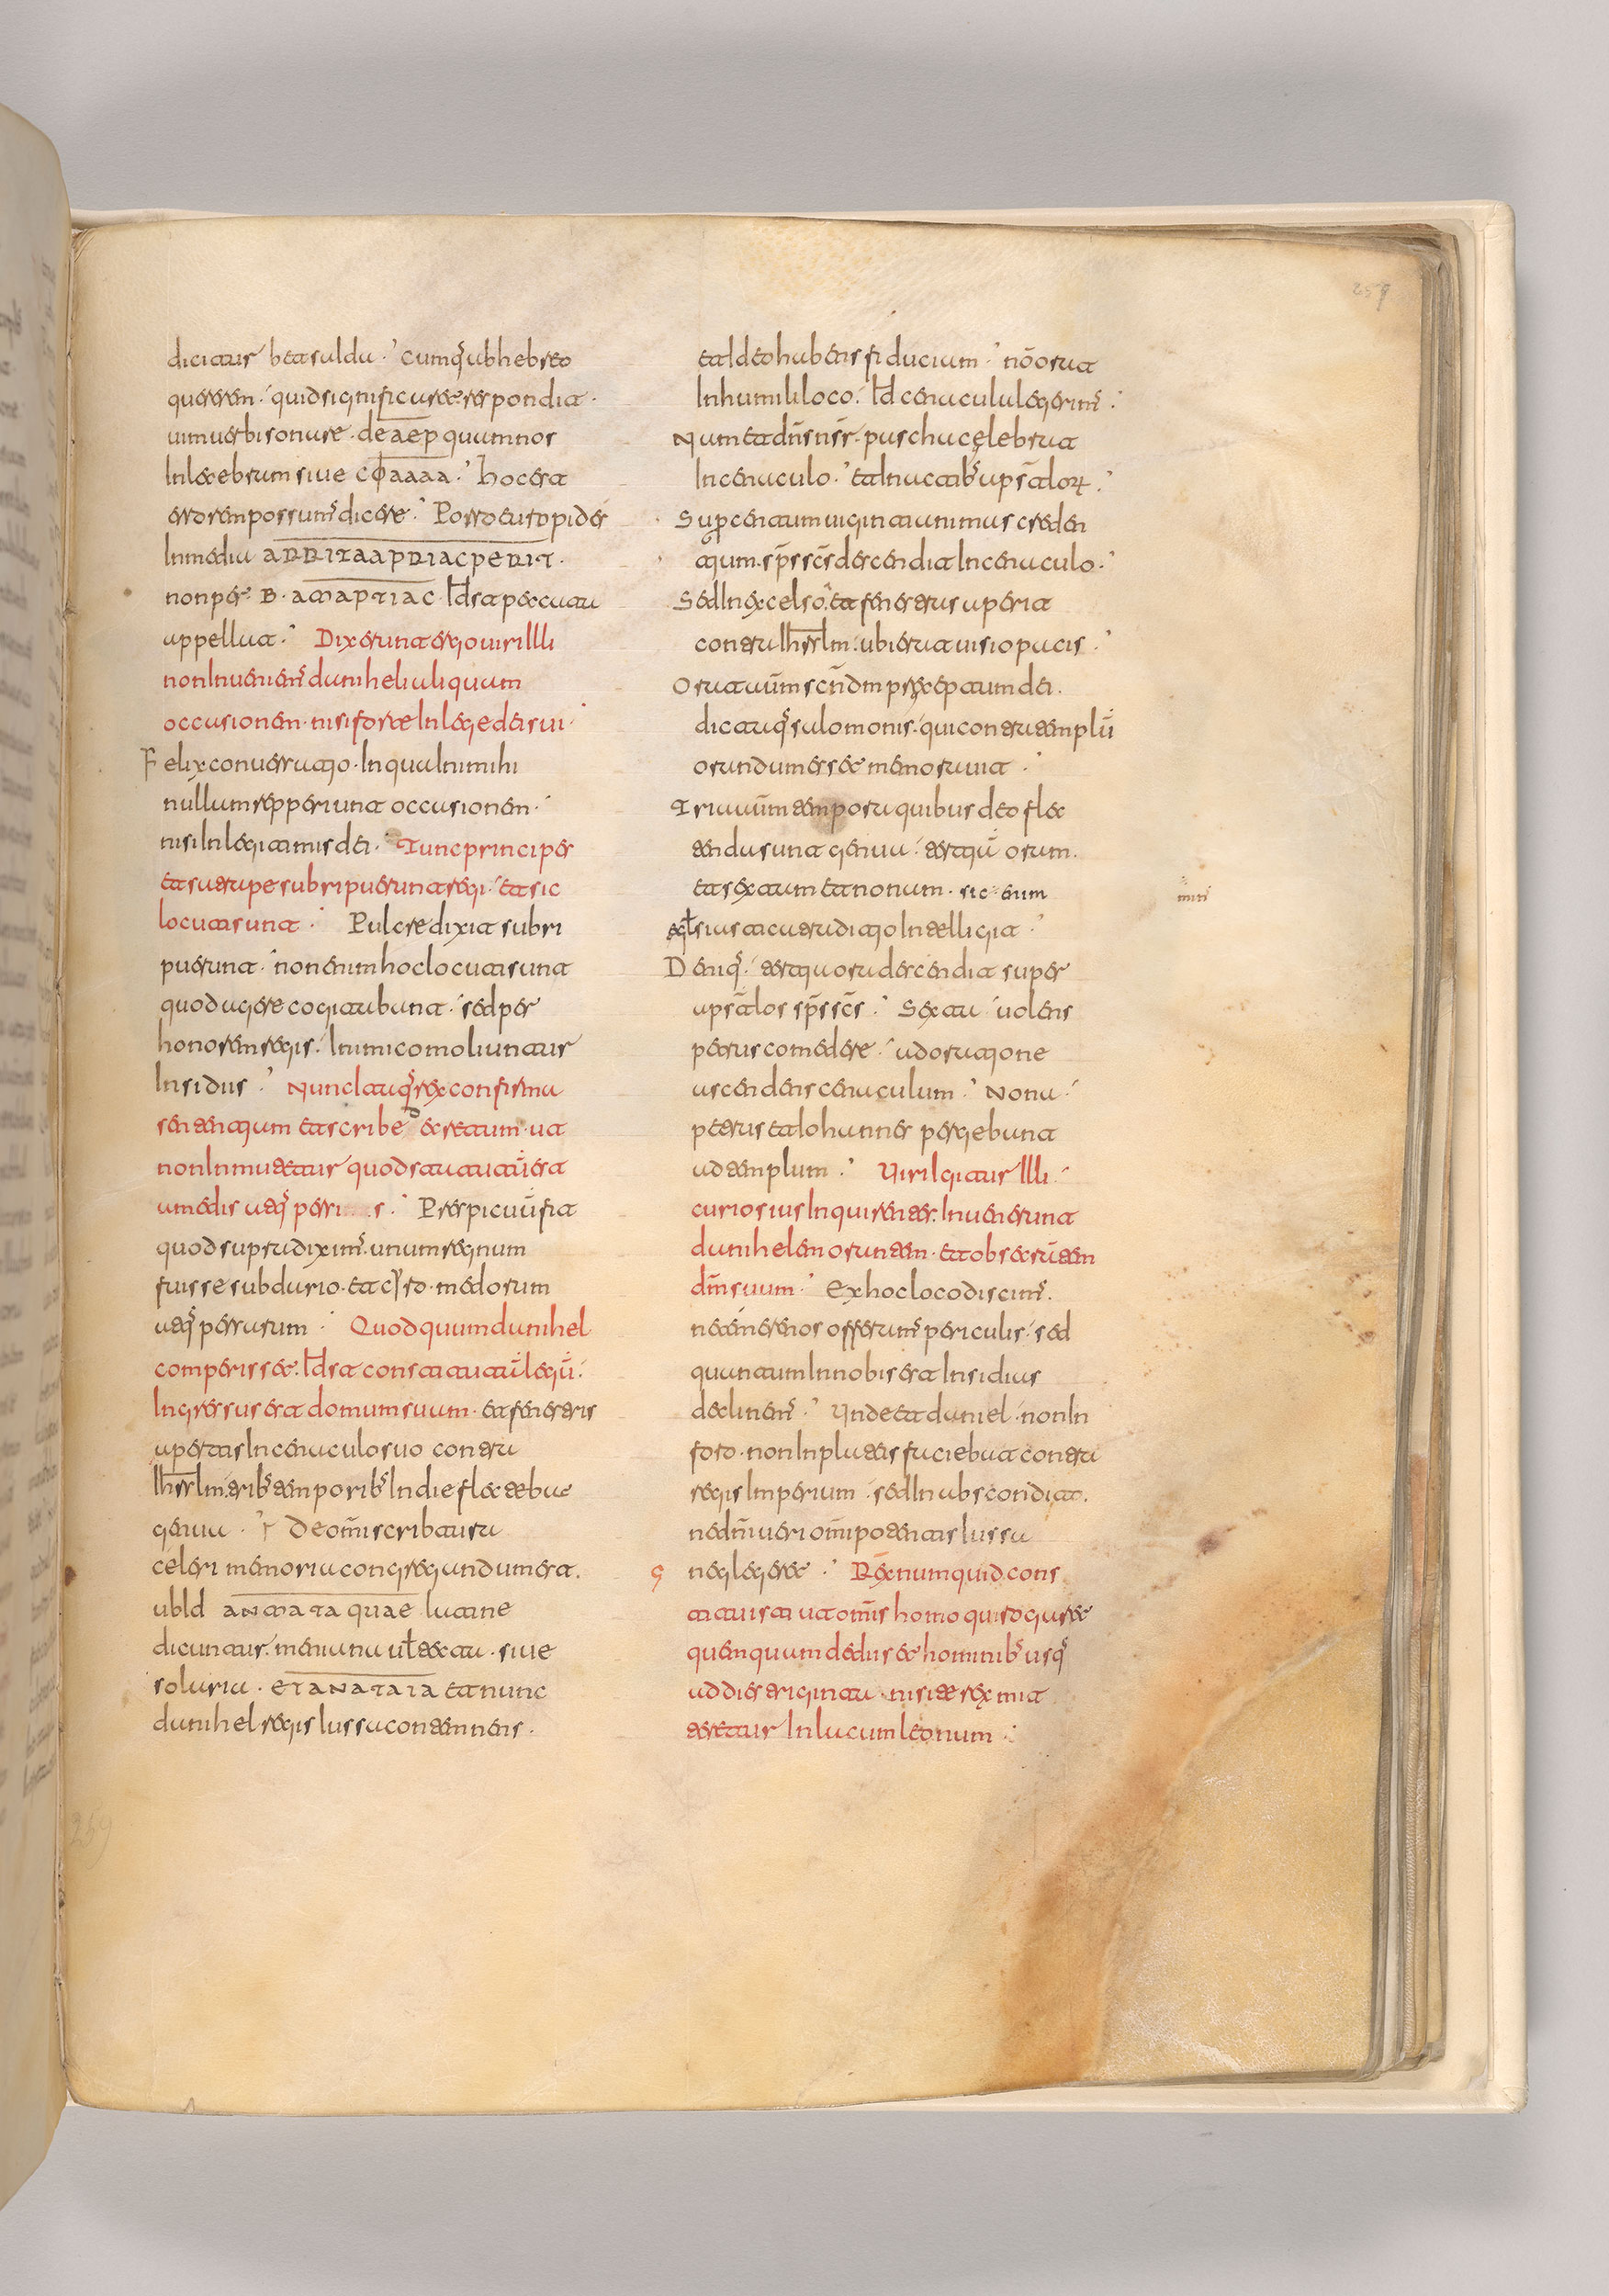 dicitur betsalda · cumq; ab hebreo
quererem · quid significaret · respondit ·
uim uerbi sonare · de aep quam nos
Inlecebram siue CΦAAAA · hoc est
errorem possum; dicere · Porro euripides
In media
non per B · id est peccata
appellat · Dixerunt ergo uiri Illi
non Inueniem; daniheli aliquam
occasionem · nisi forte In lege dei sui ·
Felix conuersatio · In qua Inimihi
nullam repperiunt occasionem ·
nisi In legitimis dei · Tunc principes
et satrape subripuerunt regi · et sic
locuti sunt · Pulcre dixit subri
puerunt · non enim hoc locuti sunt
quod agere cogitabant · sed per
honorem regis · Inimico moliuntur
Insidias · Nunc Itaq; rex confirma
sententiam et scribe decretum · ut
non Inmutetur quod statutū est
a medis atq; persis · Perspicuū fit
quod supra dixim; unum regnum
fuisse sub dario · et cyro · medorum
atq; persarum · Quod quum danihel
comperisset · Id est constitutā legē ·
Ingressus est domum suam · et fenestris
apertis In cenaculo suo contra
Ihrslm · trib; temporib; In die flectebat
genua · De om̄i scribtura
celeri memoria congregandum est ·
ubI d quae latine
dicuntur · meniana ut̄ tecta · siue
solaria · et nunc
danihel regis Iussa contemnens ·
et In deo habens fiduciam · nō orat
In humili loco · Id cenacula legerim; ·
Nam et dn̄s nsr̄ · pascha celebrat
In cenaculo · et In actib; aps̄talorum ·
Super centum uiginti animas creden
tium · sp̄s sc̄s descendit In cenaculo ·
Sed In excelso · et fenestras aperit
contra Ihrslm · ubi erat uisio pacis ·
Orat aūm scn̄dm preceptum dei ·
dictaq; salomonis · qui contra templū
orandum esse memorauit ·
Tria aūm tempora quibus deo flec
tenda sunt genua · tertiā oram ·
et sextam et nonam · sic enim
eccl̄siastica traditio Intelligit ·
Deniq; · tertia ora descendit super
aps̄talos sp̄s sc̄s · Sexta uolens
petrus comedere · ad oratione
ascendens cenaculum · Nona
petrus et Iohannes pergebant
ad templum · Uiri Igitur Illi ·
curiosius Inquirentes · Inuenerunt
danihelem orantem · et obsecrantem
dm̄ suum · Ex hoc loco discim; ·
ne temere nos offeram; periculis · sed
quantum In nobis est Insidias
declinem; · Unde et daniel · non In
foro · non In plateis faciebat contra
regis Imperium · sed In abscondito ·
ne dm̄i ueri om̄ipotentis Iussa
neglegeret · Rex numquid cons
tituisti ut om̄is homo qui rogaret
quemquam de diis et hominib; usq;
ad dies triginta · nisi te rex mit
teretur In lacum leonum ·